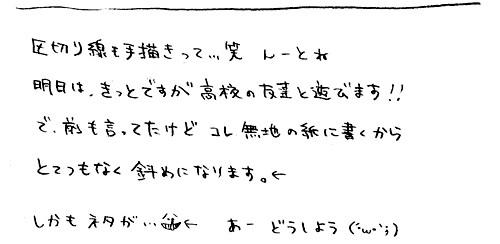 区切り線も手描きって…笑 んーとね
明日は、きっとですが高校の友達と遊びます!!
で、前も言ってたけど コレ無地の紙に書くから
とてつもなく斜めになります。←
しかもネタが…笑← あー どうしよう (´・ω・`;)